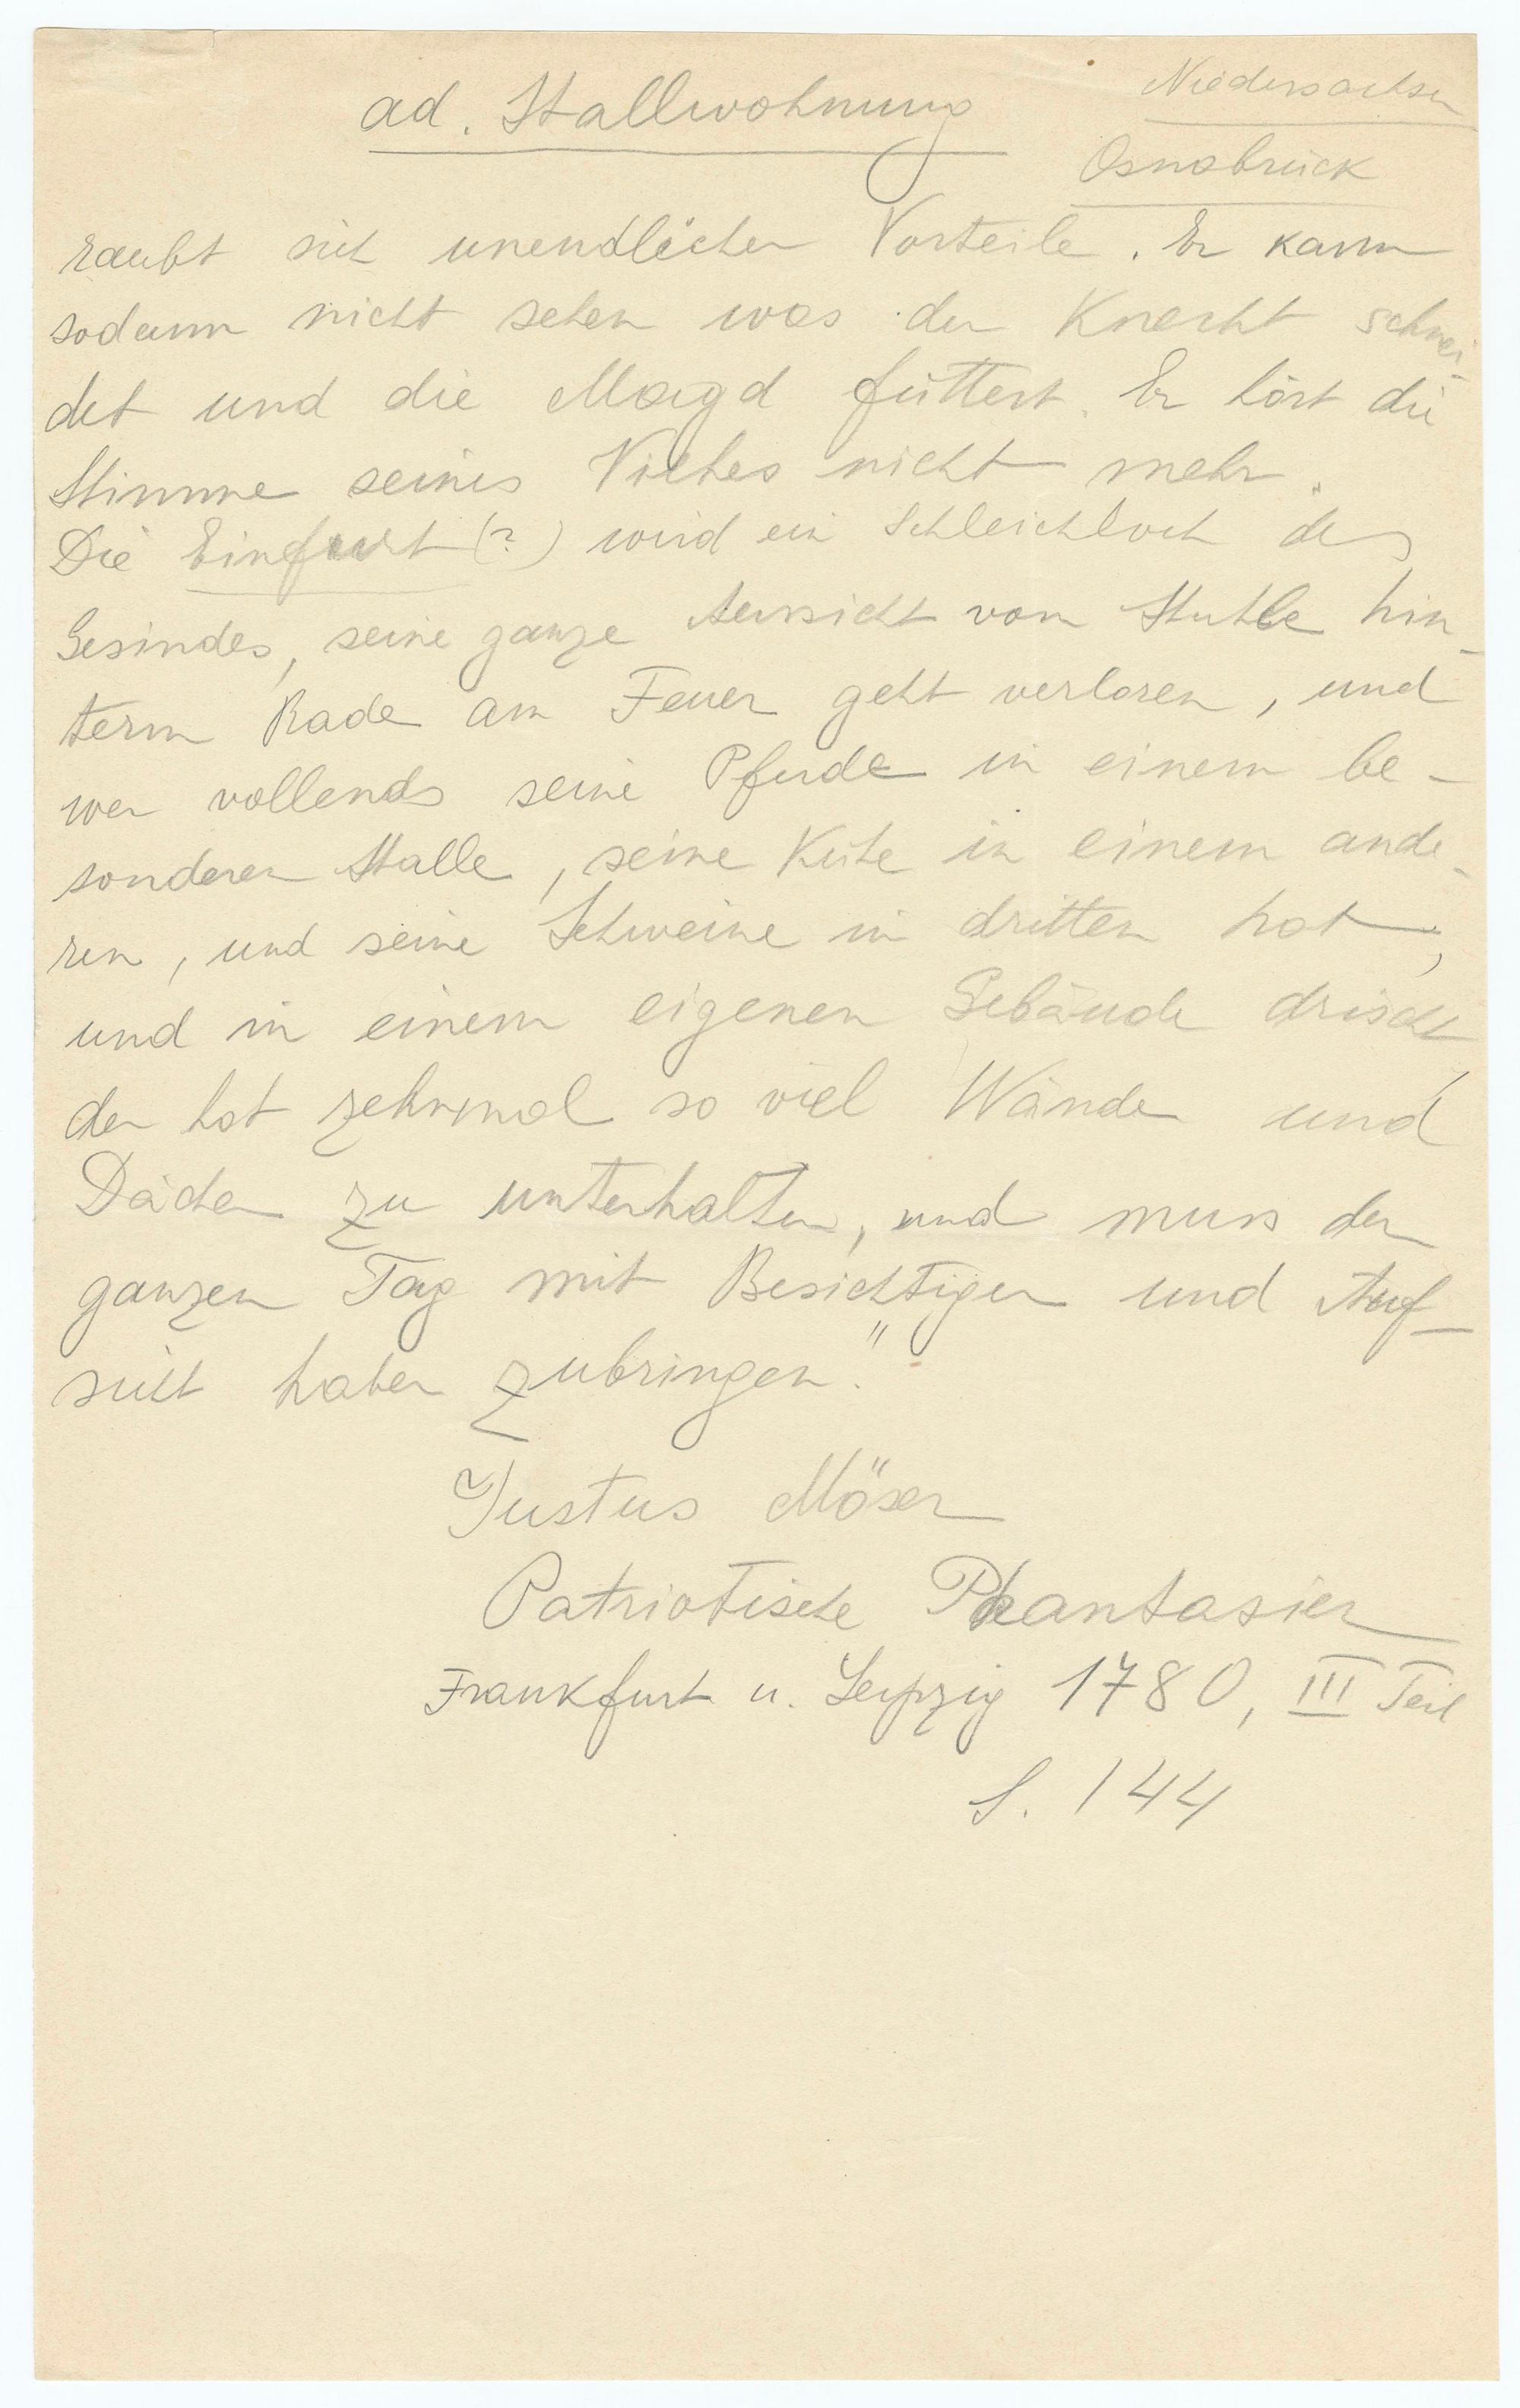 ad. Stallwohnung
Niedersachsen
Osnabrück
raubt sich unendlicher Vorteile. Er kann
sodann nicht sehen was der Knecht schnei-
det und die Magd füttert. Er hört die
Stimme seines Viehes nicht mehr.
Die Einfurt (?) wird ein Schleichloch des
Gesindes, seine ganze Aussicht vom Stuhle hin-
term Rade am Feuer geht verloren, und
wer vollends seine Pferde in einem be-
sonderen Stalle, seine Kühe in einem ande-
ren, und seine Schweine in dritten hat,
und in einem eigenen Gebäude drischt
der hat zehnmal so viel Wände und
Dächer zu unterhalten, und muss den
ganzen Tag mit Besichtigen und Auf-
sicht haben zubringen."
Justus Möser
Patriotische Phantasien
Frankfurt u. Leipzig 1780, III Teil
S. 144